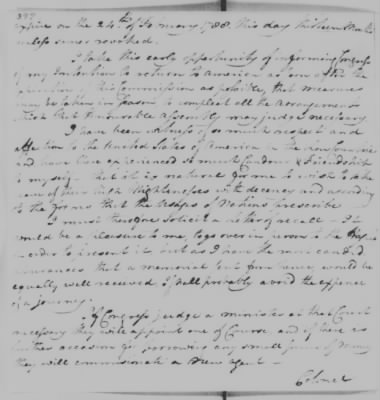 397
expire on the 24th of Feb'y 1788. this day thirteen Months
unless sooner revoked.
I take this early opportunity of informing Congress
of my Intentions to return to America as soon after the
expiration of this Commission as possible, that measures
may be taken in season to compleat all the arrangements
which that Honourable Assembly may judge necessary.
I have been witness of so much respect and
affection to the United States of America in the Low Countries
and have Experienced so much Candour & Friendship
to myself that it is natural for me to wish to take
leave of their high Mightinesses with decency and according
to the forms that the Usages of Nations prescribe
I must therefore solicit a letter of recall - It
would be a pleasure to me to go over in person to the Hague
in order to present it, but as I have the most candid
assurances that a memorial sent from hence would be
equally well received I shall probably avoid the expence
of a journey.
If Congress judge a minister at that Court
necessary they will appoint one of Course and if there is
further occasion for borrowing any small sums of money
they will commission a new agent -
Colonel